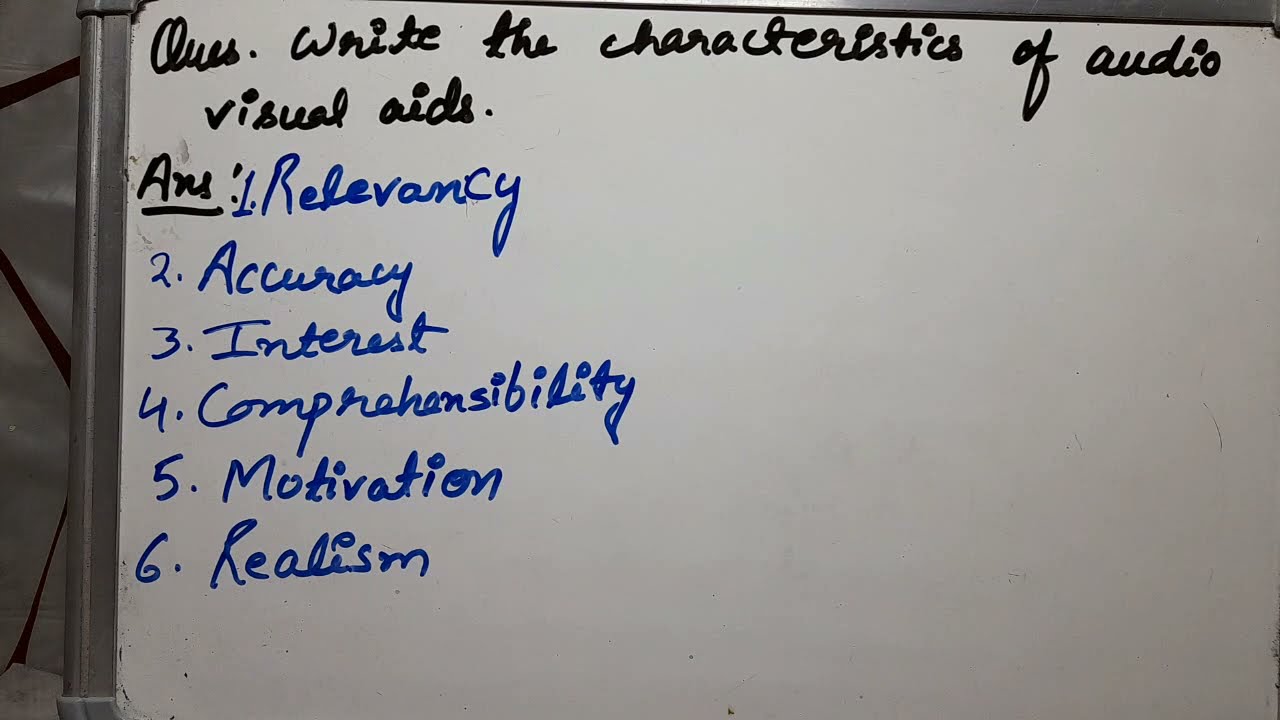 Ques. Write the characteristics of audio
visual aids.
Ans: 1. Relevancy
2. Accuracy
3. Interest
4. Comprehensibility
5. Motivation
6. Realism